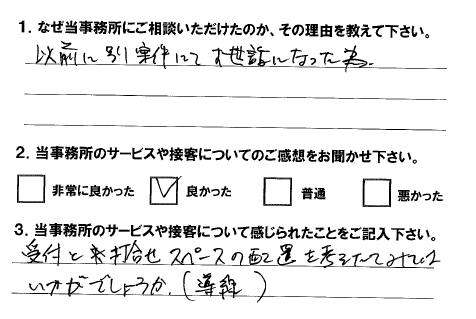 1. なぜ当事務所にご相談いただけたのか、その理由を教えて下さい。
以前に別案件にてお世話になった為。
2. 当事務所のサービスや接客についてのご感想をお聞かせ下さい。
非常に良かった 良かった 普通 悪かった
3. 当事務所のサービスや接客について感じられたことをご記入下さい。
受付と 打合せスペースの配置を考えたてみては
いかがでしょうか。(導線)